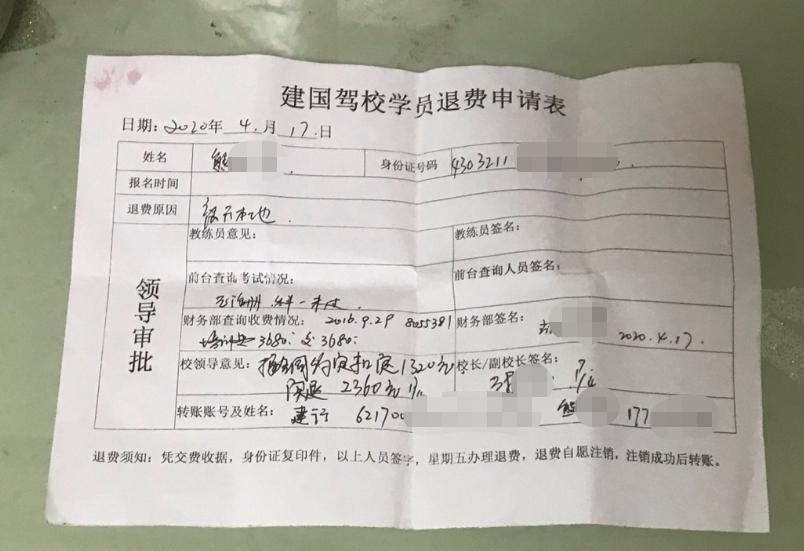 建国驾校学员退费申请表
日期：2020年 4 月 17 日
姓名 熊 身份证号码 4303211
报名时间
退费原因 本地
教练员意见： 教练员签名：
领导审批
前台查询考试情况： 前台查询人员签名：
科一未过
财务部查询收费情况： 2016.9.29 8055381 财务部签名：
3680 3680 2020.4.17.
校领导意见： 按合同约定扣除1320元 校长/副校长签名：
实退 2360元
转账账号及姓名： 建行 621700 熊 177
退费须知：凭交费收据，身份证复印件，以上人员签字，星期五办理退费，退费自愿注销，注销成功后转账。